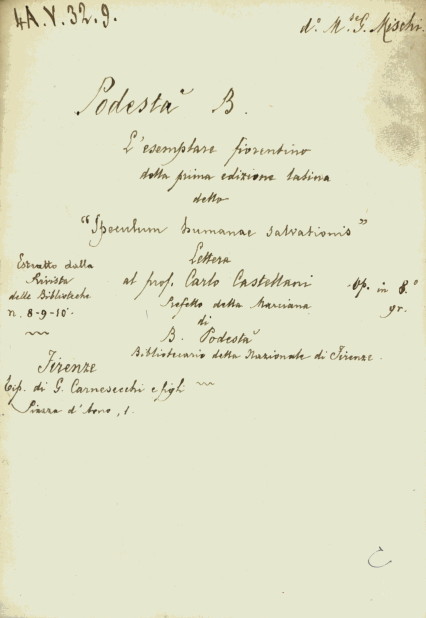 4A.V.32.9.
d.º M.se G. Mischi.
Podestà B.
L'esemplare fiorentino
della prima edizione latina
dello
"Speculum humanae salvationis"
Lettera
al prof. Carlo Castellani
Prefetto della Marciana
di
B. Podestà
Bibliotecario della Nazionale di Firenze.
Estratto dalla
Rivista
delle Biblioteche
n. 8-9-10.
Op. in 8.º
gr.
Firenze
Tip. di G. Carnesecchi e figli
Piazza d'Arno, 1.